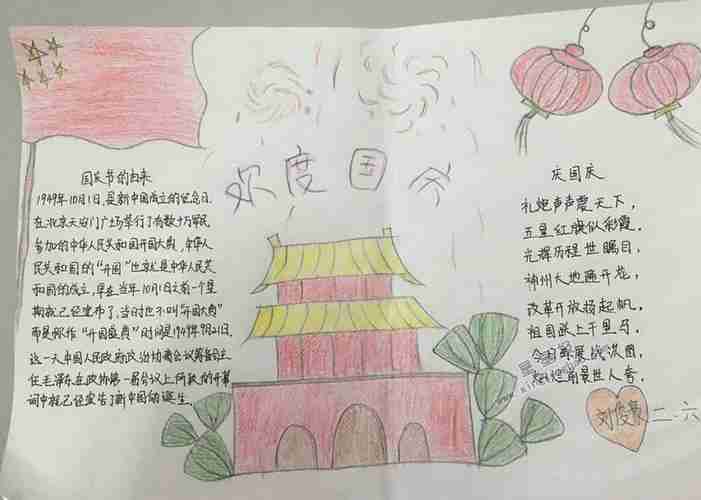 欢度国今
国庆节的由来
1949年10月1日,是新中国成立的纪念日.
在北京天安门广场举行了有数十万军民
参加的中华人民共和国开国大典,中华人
民共和国的“开国”也就是中华人民共
和国的成立,早在当年10月1日之前一个星
期就已经宣布了,当时也不叫“开国大典”
而是称作“开国盛典”时间是1949年9月21日.
这一天中国人民政府政治协商会议筹备会主
任毛泽东在政协第一届会议上所致的开幕
词中就已经宣告了新中国的诞生.
庆国庆
礼炮声声震天下,
五星红旗似彩霞.
光辉历程世瞩目,
神州大地画开花,
改革开放扬起帆,
祖国跃上千里马,
今日
世人夸.
刘俊
二.六